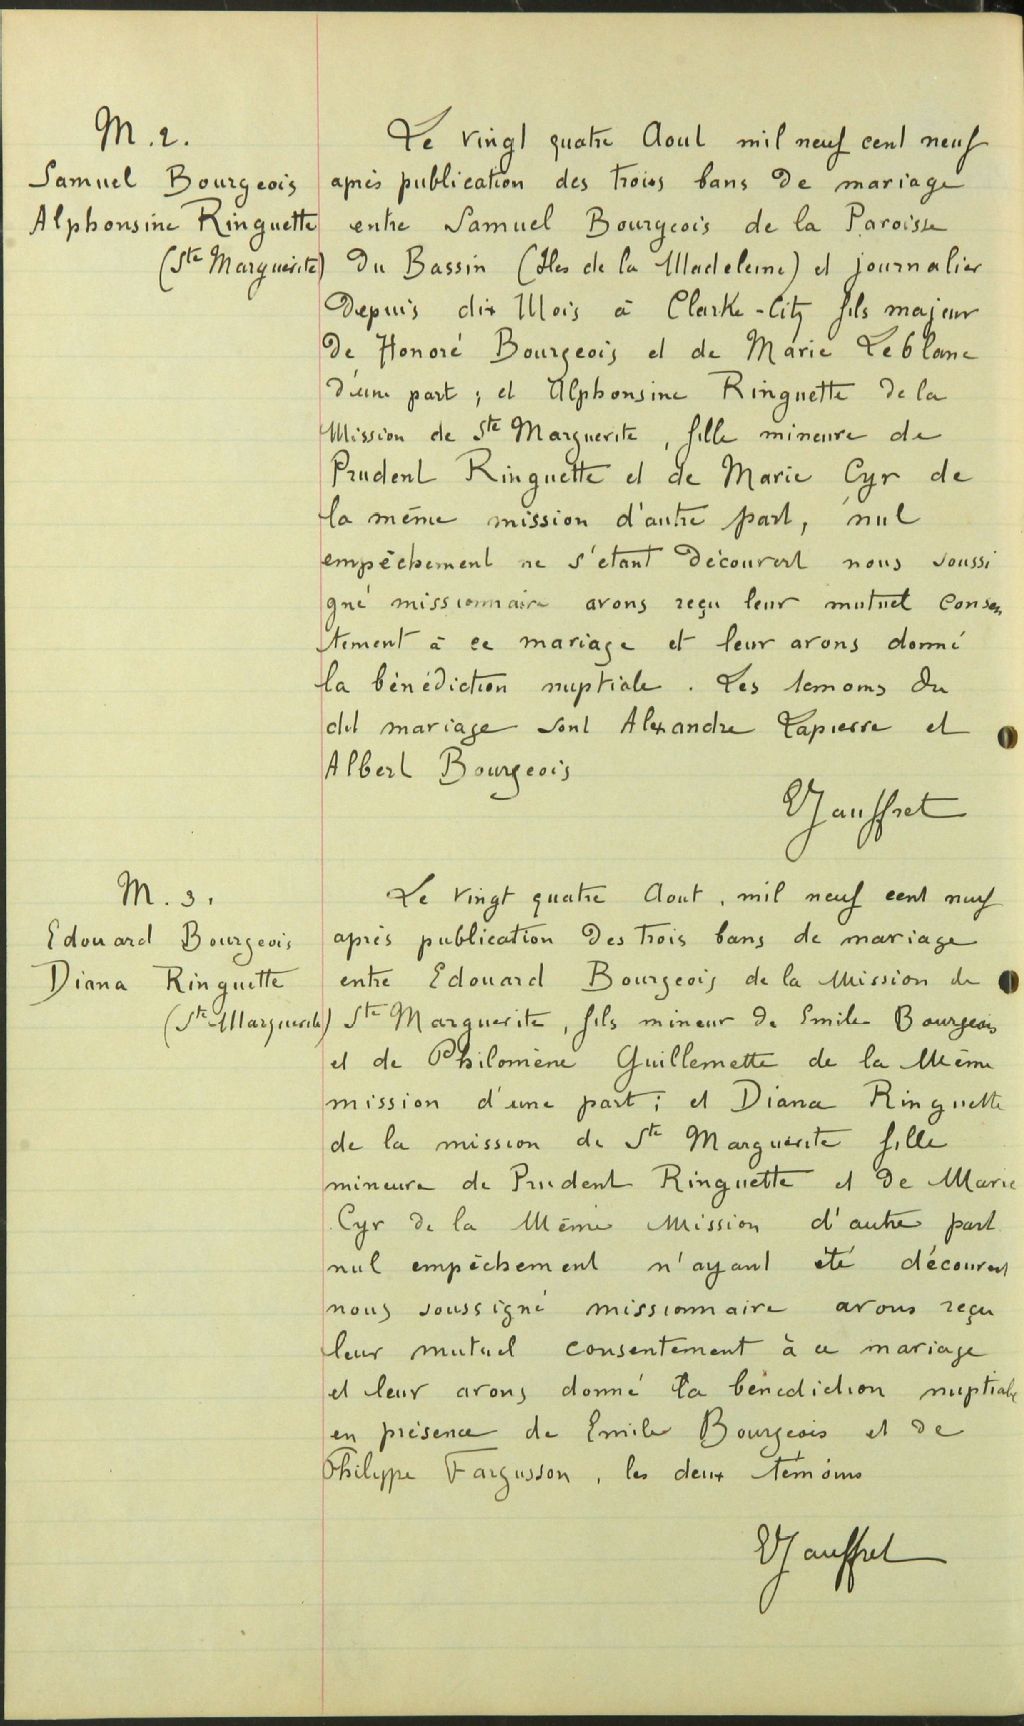 M. 2.
Samuel Bourgeois
Alphonsine Ringuette
(Ste Marguerite)
Le vingt quatre Aout mil neuf cent neuf
après publication des trois bans de mariage
entre Samuel Bourgeois de la Paroisse
du Bassin (Iles de la Madeleine) et journalier
depuis dix Mois à Clarke-City fils majeur
de Honoré Bourgeois et de Marie Leblanc
d'une part ; et Alphonsine Ringuette de la
Mission de Ste Marguerite, fille mineure de
Prudent Ringuette et de Marie Cyr de
la même mission d'autre part, nul
empêchement ne s'étant découvert nous soussi
gné missionnaire avons reçu leur mutuel consen
tement à ce mariage et leur avons donné
la bénédiction nuptiale. Les temoins du
dit mariage sont Alexandre Lapierre et
Albert Bourgeois
EJauffret
M. 3.
Edouard Bourgeois
Diana Ringuette
(Ste Marguerite)
Le vingt quatre Aout, mil neuf cent neuf
après publication des trois bans de mariage
entre Edouard Bourgeois de la Mission de
Ste Marguerite, fils mineur de Emile Bourgeois
et de Philomène Guillemette de la Même
mission d'une part ; et Diana Ringuette
de la mission de Ste Marguerite fille
mineure de Prudent Ringuette et de Marie
Cyr de la Même Mission d'autre part
nul empêchement n'ayant été découvert
nous soussigné missionnaire avons reçu
leur mutuel consentement à ce mariage
et leur avons donné la bénédiction nuptiale
en présence de Emile Bourgeois et de
Philippe Fargusson, les deux témoins
EJauffret